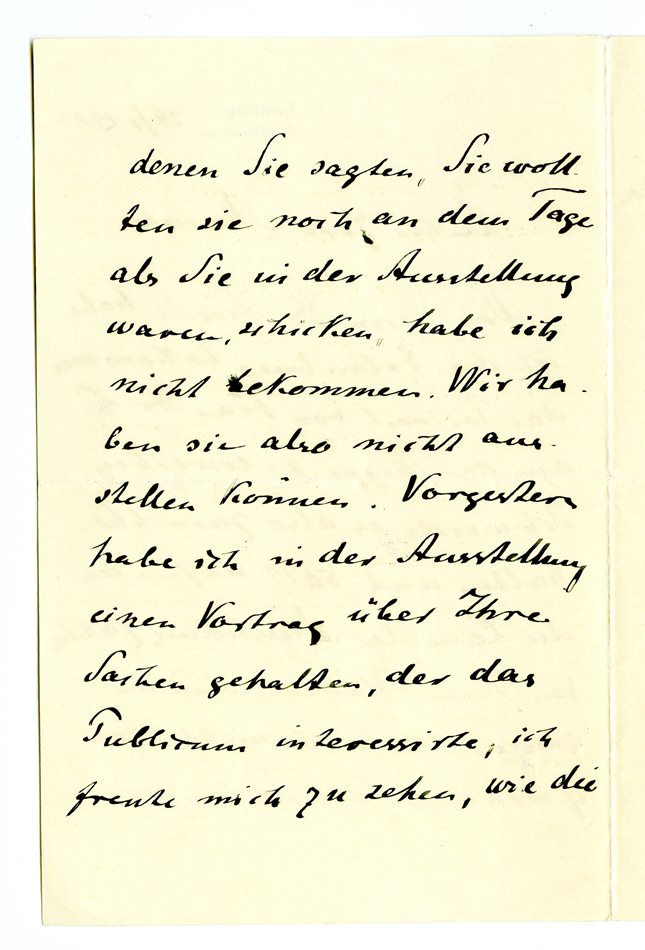 denen Sie sagten, Sie woll-
ten sie noch an dem Tage
als Sie in der Ausstellung
waren, schicken, habe ich
nicht bekommen. Wir ha-
ben sie also nicht aus-
stellen können. Vorgestern
habe ich in der Ausstellung
einen Vortrag über Ihre
Sachen gehalten, der das
Publicum interessirte, ich
freute mich zu sehen, wie die